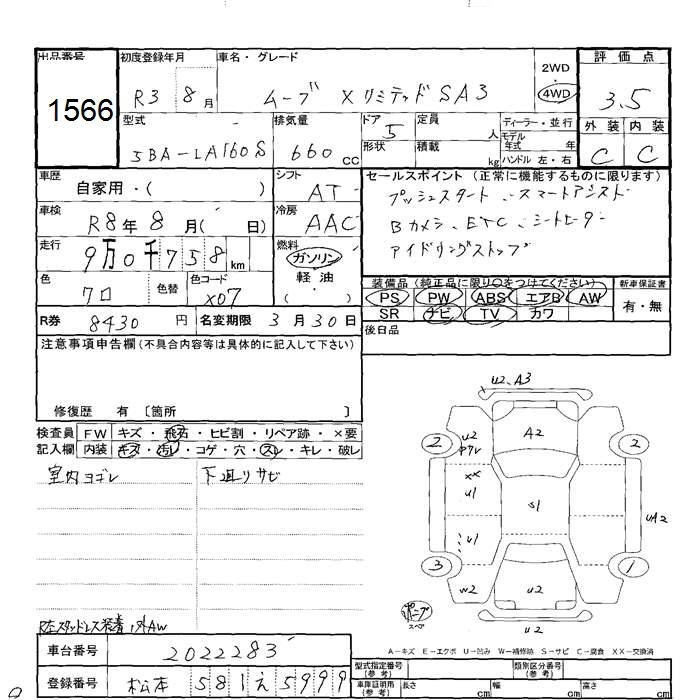 出品番号
1566
初度登録年月
R3 8月
車名・グレード
ムーブ X リミテッド SA3
2WD
4WD
評価点
3.5
外装 内装
C C
型式
5BA-LA160S
排気量
660 cc
ドア
5
形状
定員
人
積載
kg
ディーラー・並行
モデル
年式 年
ハンドル 左・右
車歴
自家用・( )
シフト
AT
車検
R8年8月( 日)
冷房
AAC
走行
9万0千758 km
燃料
ガソリン
軽油
( )
色
クロ
色替
色コード
X07
R券 8430円
名変期限 3月30日
セールスポイント (正常に機能するものに限ります)
プッシュスタート、スマートアシスト
Bカメラ、ETC、シートヒーター
アイドリングストップ
装備品 (純正品に限り○をつけてください)
PS PW ABS エアB AW
SR ナビ TV カワ
新車保証書
有・無
後日品
注意事項申告欄(不具合内容等は具体的に記入して下さい)
修復歴 有 〔箇所 〕
検査員
記入欄
FW キズ・飛石・ヒビ割・リペア跡・×要
内装 キズ・汚レ・コゲ・穴・スレ・キレ・破レ
室内ヨゴレ
下廻りサビ
U2、A3
2
U2
アタレ
A2
2
XX
U1
S1
UA2
U1
3
1
W2
U2
U2
スペア
A-キズ E-エクボ U-凹み W-補修跡 S-サビ C-腐食 XX-交換済
積スタッドレス装着 外AW
車台番号 2022283
登録番号 松本 581 え 5999
型式指定番号
(参考)
類別区分番号
(参考)
車庫証明用
(参考)
長さ cm 幅 cm 高さ cm